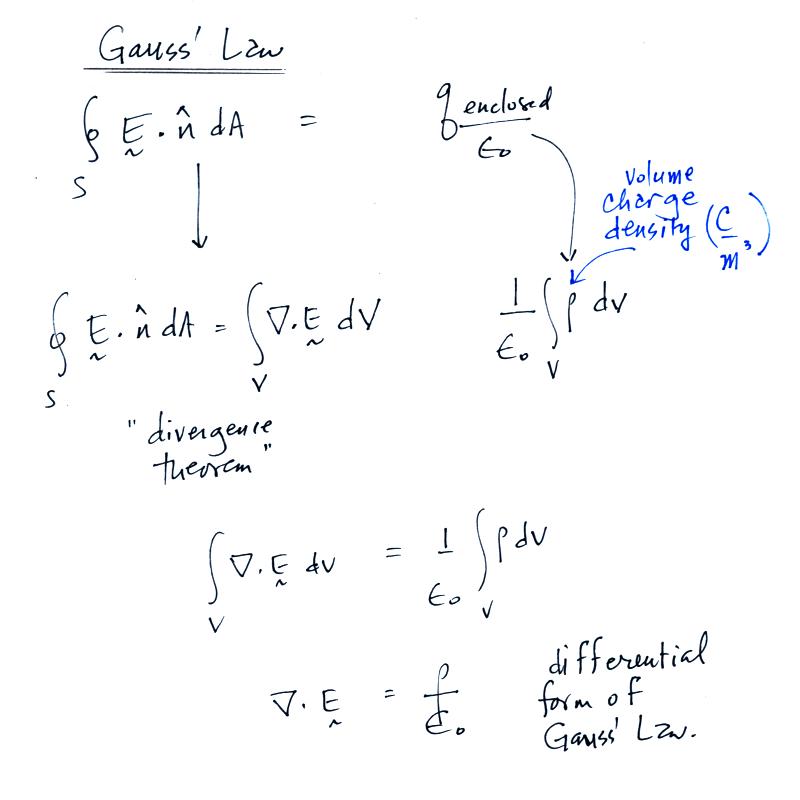 Gauss' Law
∮_S Ḛ · n̂ dA = q enclosed / ϵ₀
volume
charge
density (C/m³)
∮_S Ḛ · n̂ dA = ∫_V ∇·Ḛ dV    1/ϵ₀ ∫_V ρ dV
"divergence
theorem"
∫_V ∇·Ḛ dV = 1/ϵ₀ ∫_V ρ dV
∇·Ḛ = ρ/ϵ₀
differential
form of
Gauss' Law.